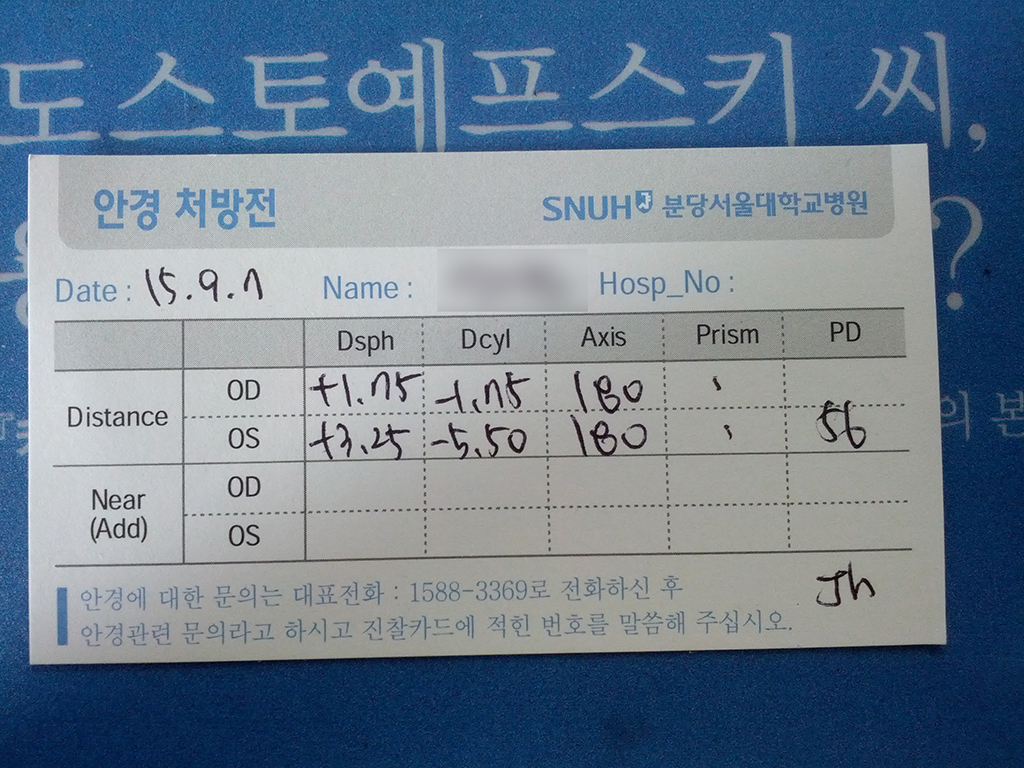 도스토예프스키 씨,
?
안경 처방전 SNUH 분당서울대학교병원
Date : 15.9.7 Name : Hosp_No :
Dsph Dcyl Axis Prism PD
Distance OD +1.75 -1.75 180
OS +3.25 -5.50 180 56
의 본
Near (Add) OD
OS
안경에 대한 문의는 대표전화 : 1588-3369로 전화하신 후
안경관련 문의라고 하시고 진찰카드에 적힌 번호를 말씀해 주십시오.
Jh